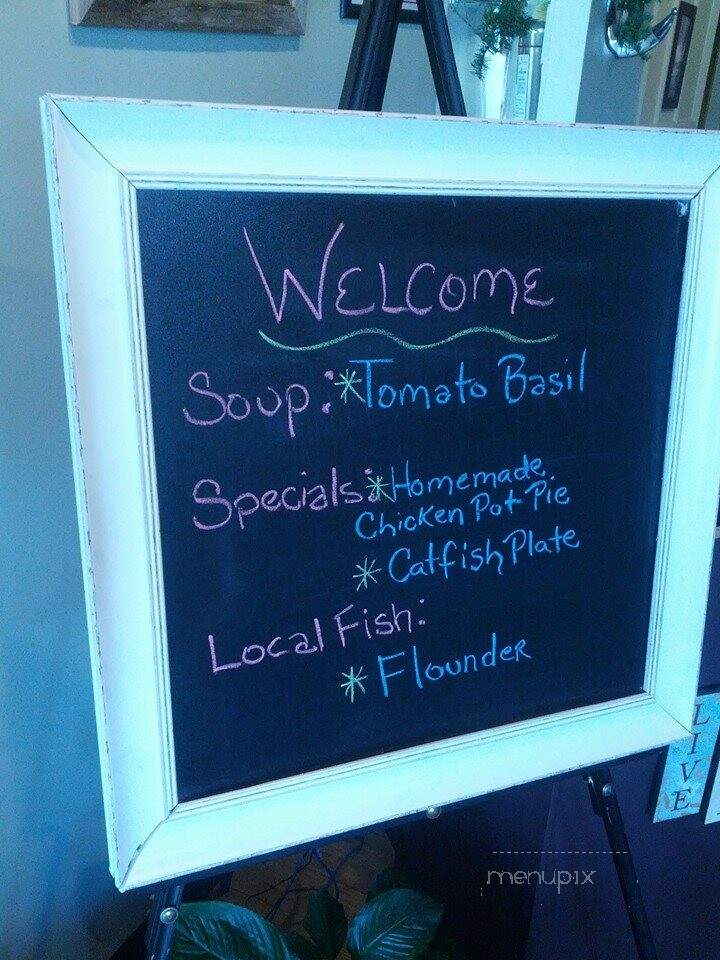 WELCOME
Soup: *Tomato Basil
Specials: *Homemade
Chicken Pot Pie
* Catfish Plate
Local Fish:
* Flounder
LIVE
menupix